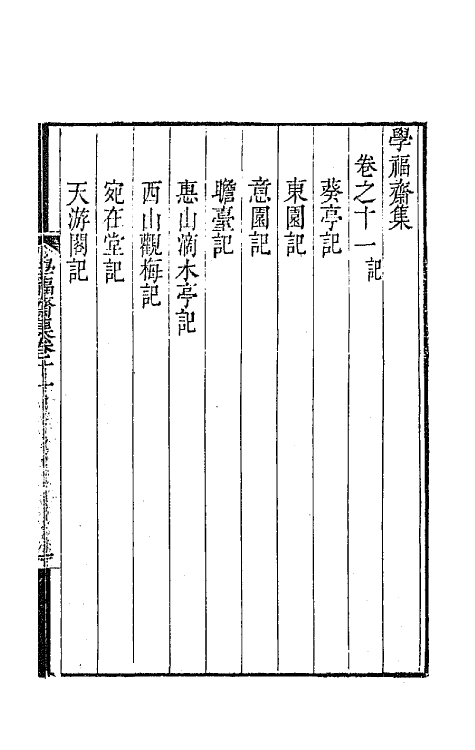 學福齋集
卷之十一 記
葵亭記
東園記
意園記
聸臺記
惠山滴水亭記
西山觀梅記
宛在堂記
天游閣記
學福齋集卷十一